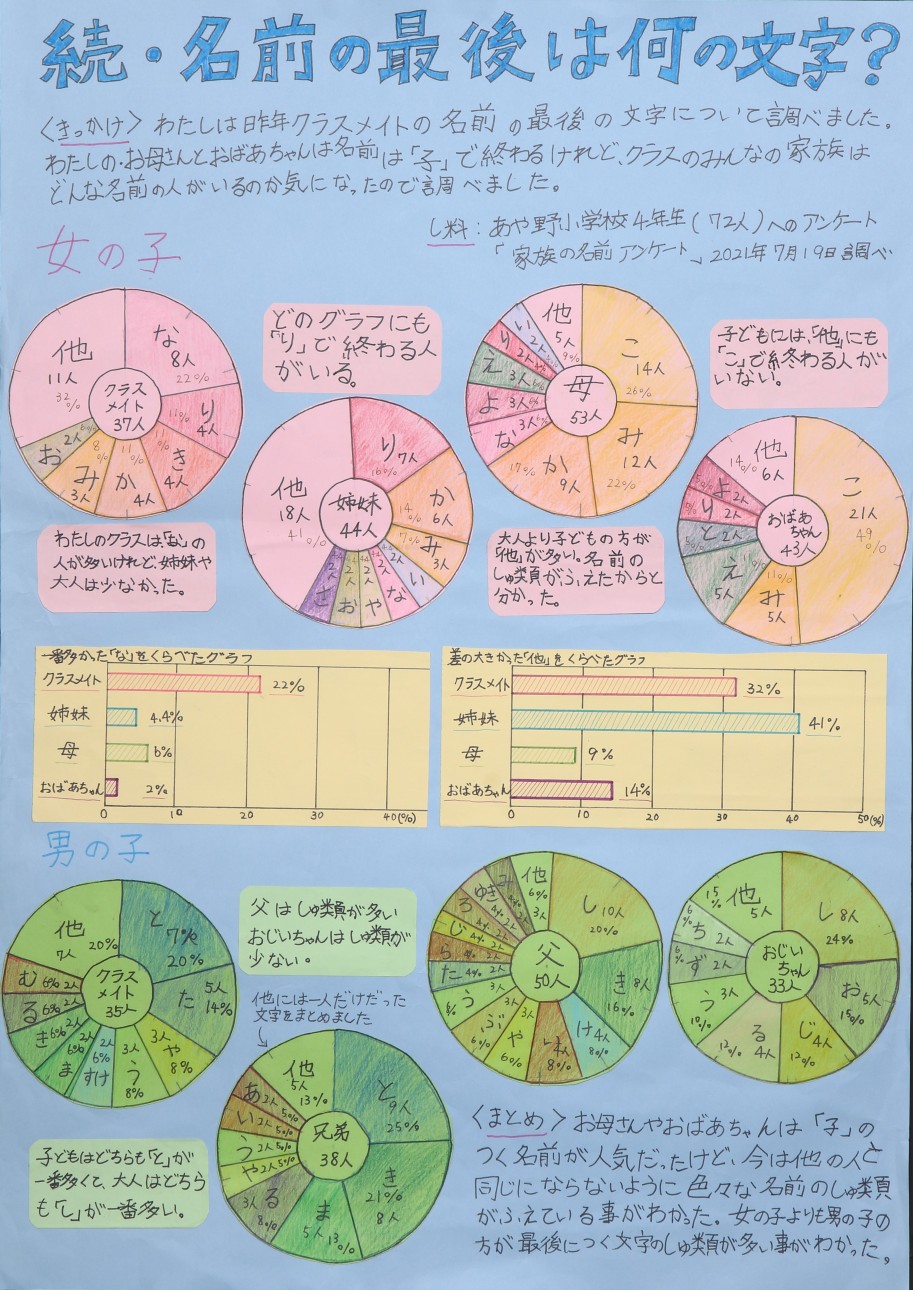 続・名前の最後は何の文字?
〈きっかけ〉わたしは昨年クラスメイトの名前の最後の文字について調べました。
わたしの・お母さんとおばあちゃんは名前は「子」で終わるけれど、クラスのみんなの家族は
どんな名前の人がいるのか気になったので調べました。
し料:あや野小学校4年生(72人)へのアンケート
「家族の名前アンケート」2021年7月19日調べ
女の子
クラス
メイト
37人
な
8人
22%
り
11%
4人
き
11%
4人
か
11%
4人
み
8%
3人
お
6%
2人
他
11人
32%
どのグラフにも
「り」で終わる人
がいる。
姉妹
44人
り7人
16%
か
14%
6人
み
7%
3人
い
2人
な
2人
や
2人
お
2人
さ
他
18人
41%
母
53人
こ
14人
26%
み
12人
22%
か
17%
9人
な
よ
3人6%
え
3人6%
り
2人
い
2人
他
5人
9%
子どもには、「他」にも
「こ」で終わる人が
いない。
おばあ
ちゃん
43人
こ
21人
49%
み
11%
5人
え
5人
と2人
り2人
よ2人
他
14%
6人
わたしのクラスは、「な」の
人が多いけれど、姉妹や
大人は少なかった。
大人より子どもの方が
「他」が多い。名前の
しゅ類がふえたからと
分かった。
一番多かった「な」をくらべたグラフ
クラスメイト 22%
姉妹 4.4%
母 6%
おばあちゃん 2%
0 10 20 30 40(%)
差の大きかった「他」をくらべたグラフ
クラスメイト 32%
姉妹 41%
母 9%
おばあちゃん 14%
0 10 20 30 40 50(%)
男の子
クラス
メイト
35人
と
7%
20%
た
5人
14%
や
3人
8%
う
3人
8%
すけ
2人
6%
ま
2人
6%
き6%2人
る6%2人
む6%2人
他
7人 20%
父はしゅ類が多い
おじいちゃんはしゅ類が
少ない。
他には一人だけだった
文字をまとめました
兄弟
38人
と
9人
25%
き
21%
8人
ま
5人13%
る
3人
8%
や2人5%
う2人5%
い2人5%
あ2人5%
他
5人
13%
父
50人
し10人
20%
き8人
16%
け4人
8%
4人
8%
や
3人
6%
ぶ
3人
6%
う
3人
た4%2人
ら4%2人
じ4%2人
ろ
ゆき
み
他
6%
3人
おじい
ちゃん
33人
し8人
24%
お5人
15%
じ4人
12%
る
12%4人
う3人
10%
ず2人
6%
ち2人
6%
他
15%
5人
子どもはどちらも「と」が
一番多くて、大人はどちら
も「し」が一番多い。
〈まとめ〉お母さんやおばあちゃんは「子」の
つく名前が人気だったけど、今は他の人と
同じにならないように色々な名前のしゅ類
がふえている事がわかった。女の子よりも男の子の
方が最後につく文字のしゅ類が多い事がわかった。